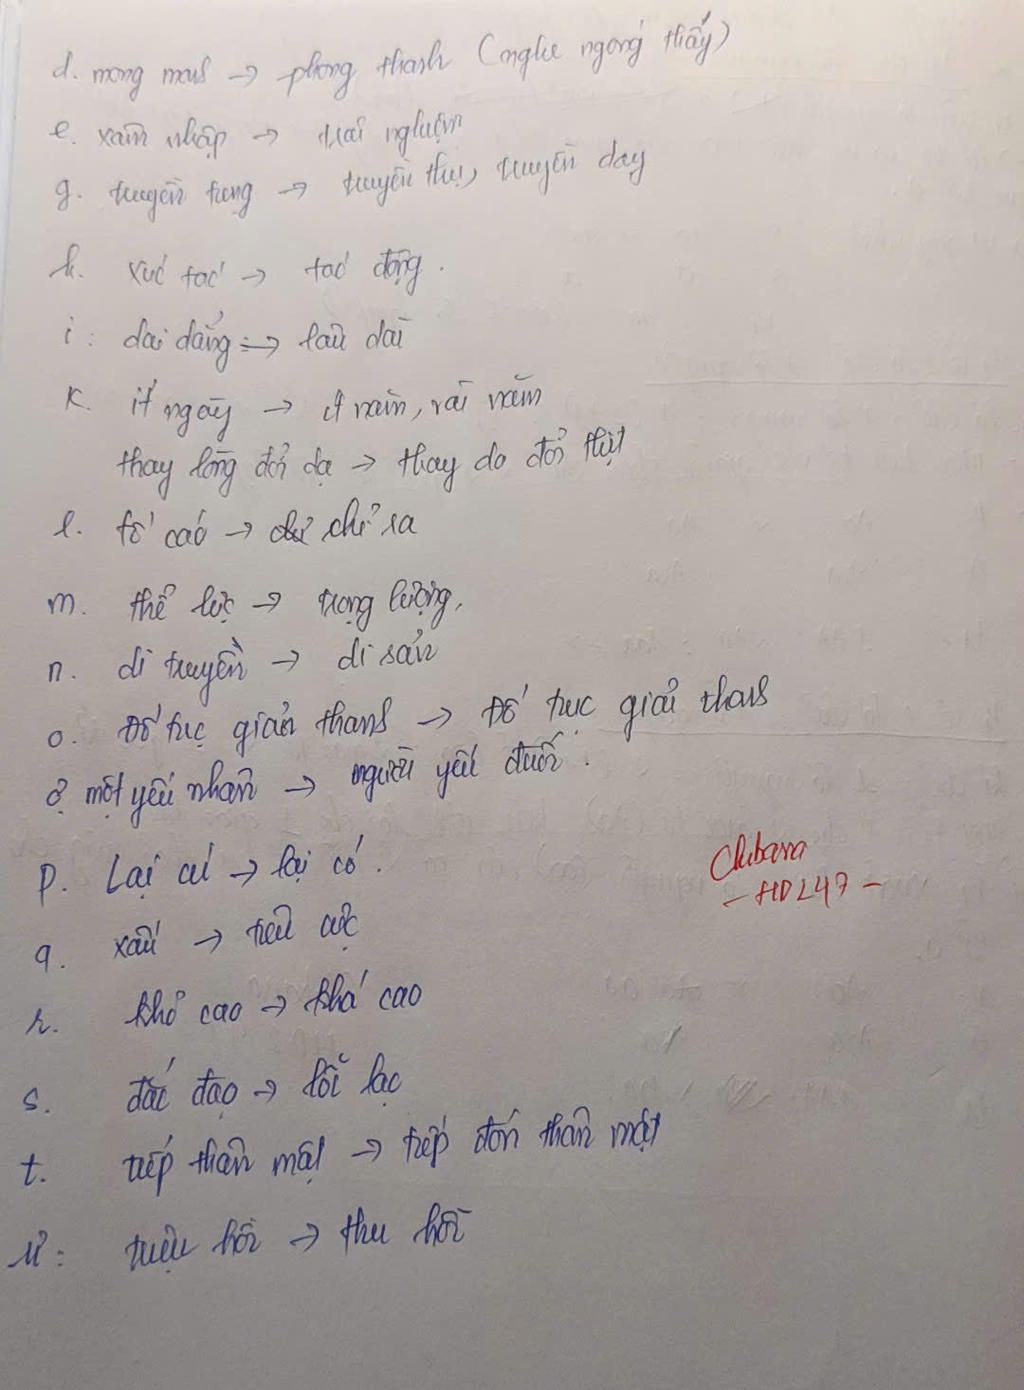 d. mong manh → phong thanh (nghe ngóng thấy)
e. xâm nhập → trải nghiệm
g. truyền tụng → truyền thụ, truyền dạy
h. xúc tác → tác động.
i: dai dẳng → lâu dài
k. ít ngày → ít năm, vài năm
thay lòng đổi dạ → thay da đổi thịt
l. tố cáo → chỉ ra
m. thể lực → trọng lượng,
n. di truyền → di sản
o. Đố tục giản thanh → Đố tục giải thanh
ở một yếu nhân → người yếu đuối.
p. Lại cứ → lại có.
q. xấu → tiêu cực
r. khổ cao → khá cao
s. đắc đạo → lỗi lạc
t. tiếp thân mật → tiếp đón thân mật
u: triệu hồi → thu hồi
Chibana
- HDL47 -